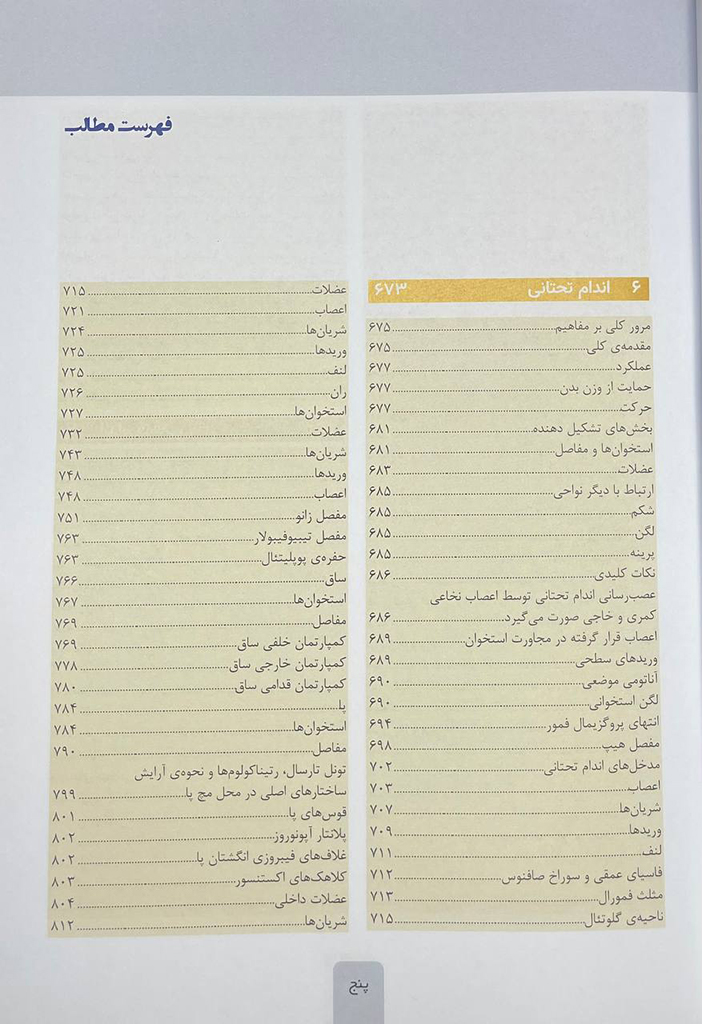 فهرست مطالب
۶ اندام تحتانی ۶۷۳
مرور کلی بر مفاهیم ۶۷۵
مقدمه‌ی کلی ۶۷۵
عملکرد ۶۷۷
حمایت از وزن بدن ۶۷۷
حرکت ۶۷۷
بخش‌های تشکیل دهنده ۶۸۱
استخوان‌ها و مفاصل ۶۸۱
عضلات ۶۸۳
ارتباط با دیگر نواحی ۶۸۵
شکم ۶۸۵
لگن ۶۸۵
پرینه ۶۸۵
نکات کلیدی ۶۸۶
عصب‌رسانی اندام تحتانی توسط اعصاب نخاعی
کمری و خاجی صورت می‌گیرد ۶۸۶
اعصاب قرار گرفته در مجاورت استخوان ۶۸۹
وریدهای سطحی ۶۸۹
آناتومی موضعی ۶۹۰
لگن استخوانی ۶۹۰
انتهای پروگزیمال فمور ۶۹۴
مفصل هیپ ۶۹۸
مدخل‌های اندام تحتانی ۷۰۲
اعصاب ۷۰۳
شریان‌ها ۷۰۷
وریدها ۷۰۹
لنف ۷۱۱
فاسیای عمقی و سوراخ صافنوس ۷۱۲
مثلث فمورال ۷۱۳
ناحیه‌ی گلوتئال ۷۱۵
عضلات ۷۱۵
اعصاب ۷۲۱
شریان‌ها ۷۲۴
وریدها ۷۲۵
لنف ۷۲۵
ران ۷۲۶
استخوان‌ها ۷۲۷
عضلات ۷۳۲
شریان‌ها ۷۴۳
وریدها ۷۴۸
اعصاب ۷۴۸
مفصل زانو ۷۵۱
مفصل تیبیوفیبولار ۷۶۳
حفره‌ی پوپلیتئال ۷۶۳
ساق ۷۶۶
استخوان‌ها ۷۶۷
مفاصل ۷۶۹
کمپارتمان خلفی ساق ۷۶۹
کمپارتمان خارجی ساق ۷۷۸
کمپارتمان قدامی ساق ۷۸۰
پا ۷۸۴
استخوان‌ها ۷۸۴
مفاصل ۷۹۰
تونل تارسال، رتیناکولوم‌ها و نحوه‌ی آرایش
ساختارهای اصلی در محل مچ پا ۷۹۹
قوس‌های پا ۸۰۱
پلانتار آپونوروز ۸۰۲
غلاف‌های فیبروزی انگشتان پا ۸۰۲
کلاهک‌های اکستنسور ۸۰۳
عضلات داخلی ۸۰۴
شریان‌ها ۸۱۲
پنج